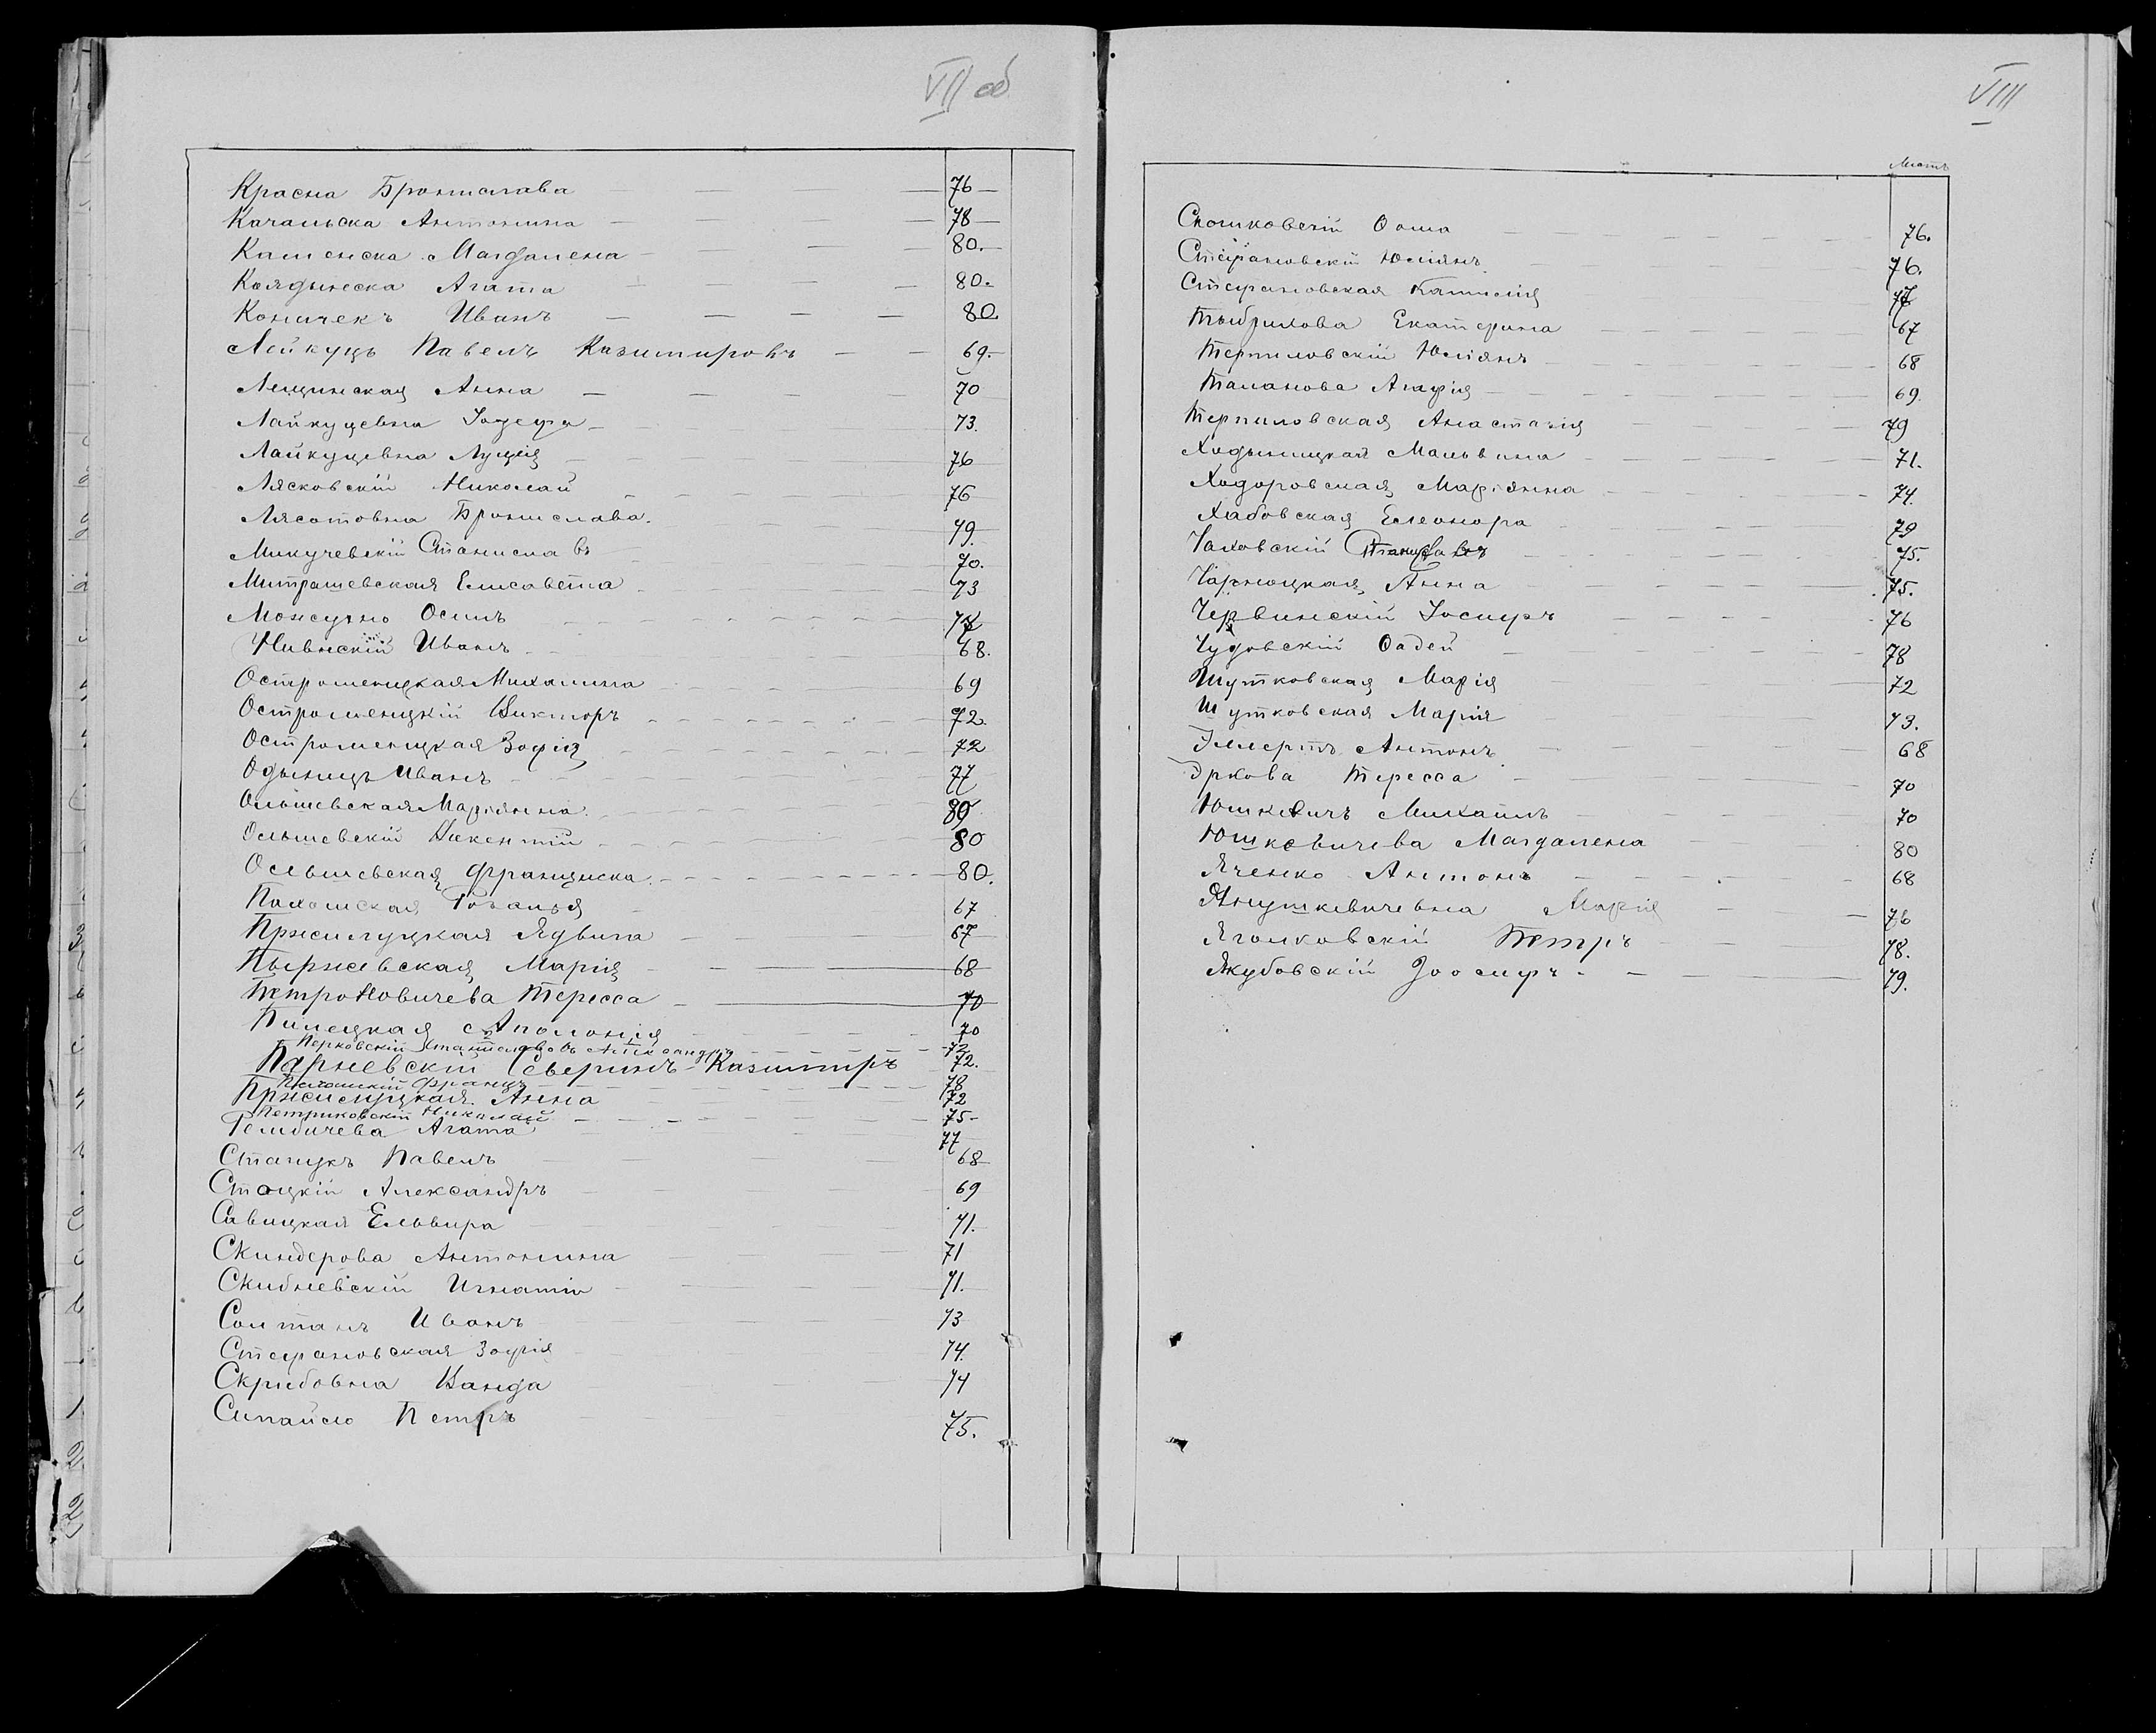 VII об
Красна Бронислава 76
Качальска Антонина 78
Каменска Магдалена 80.
Колдынска Агата 80.
Коничекъ Иванъ 80.
Лейкуцъ Павелъ Казимировъ 69.
Лещинская Анна 70
Лайкуцевна Іозефа 73.
Лайкуцевна Луція 76
Лясковскій Николай 76
Лясотовна Бронислава. 79.
Микучевскій Станиславъ 70.
Митрашевская Елисавета 73
Можсуяно Осипъ
Нивнскій Иванъ 68.
Остроменцкая Михалина 69
Остроменцкій Викторъ 72.
Остроменцкая Зофія 72
Одынецъ Иванъ 77
Ольшевская Маріянна. 80
Ольшевскій Викентій 80
Ольшевская Францишка. 80.
Паломская Розалья 67
Пржилуцкая Ядвига 67
Пыржевская Марія 68
Петроновичева Тересса 70
Пилецкая Аполонія 70
Перковскій Станиславъ Александръ 72
Паржевскій Северинъ-Казимиръ 72.
Паломскій Францъ 78
Пржилуцкая Анна 72
Петриковскій Николай 75
Рембичева Агата 77
Стапукъ Павелъ 68
Стацкій Александръ 69
Савицкая Ельвира 71.
Скиндерова Антонина 71
Скибневскій Игнатій 71.
Солтанъ Иванъ 73
Стефановская Зофія 74.
Скрибовна Ванда 74
Сипайло Петръ 75.
VIII
Листъ
Сношковскій Ѳома 76.
Стефановскій Юліянъ 76.
Стефановская Камилія 77
Тыбрихова Екатерина 67
Терпиловскій Юліянъ 68
Таланова Агафія 69.
Терпиловская Анастазія 79
Ходыницкая Мальвина 71.
Ходоровская Маріянна 74.
Хабовская Елеонора 79
Чаховскій Станиславъ 75.
Чарноцкая Анна 75.
Червинскій Іосифъ 76
Чудовскій Ѳадей 78
Шутковская Марія 72
Шутковская Марія 73.
Эллертъ Антонъ 68
Эркова Тересса 70
Юшкевичъ Михаилъ 70
Юшковичева Магдалена 80
Яченко Антонъ 68
Янушкевичевна Марія 76
Яголковскій Петръ 78.
Якубовскій Іоосифъ 79.